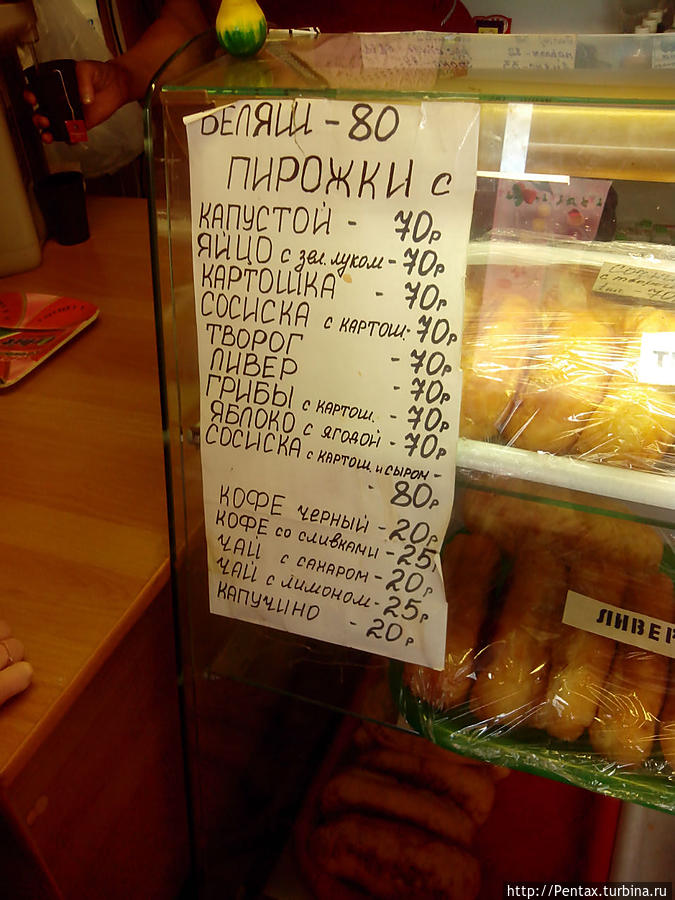 БЕЛЯШ - 80
ПИРОЖКИ С
КАПУСТОЙ - 70р
ЯЙЦО с зел. луком - 70р
КАРТОШКА - 70р
СОСИСКА с картош. - 70р
ТВОРОГ - 70р
ЛИВЕР - 70р
ГРИБЫ с картош. - 70р
ЯБЛОКО с ягодой - 70р
СОСИСКА с картош. и сыром -
- 80р
КОФЕ черный - 20р
КОФЕ со сливками - 25р
ЧАЙ с сахаром - 20р
ЧАЙ с лимоном - 25р
КАПУЧИНО - 20р
ЛИВЕР
http://Pentax.turbina.ru